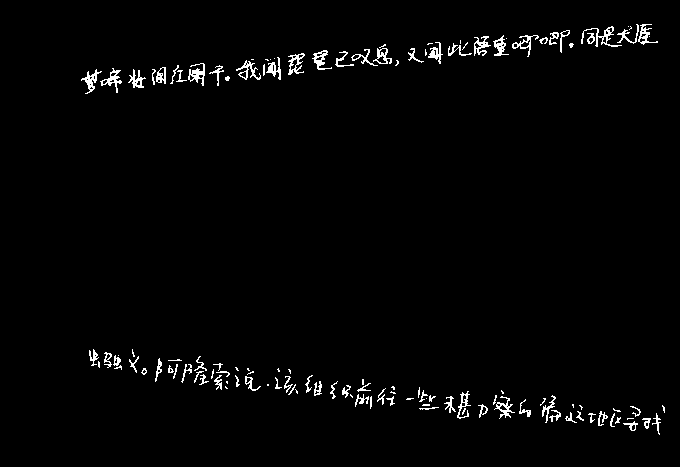 梦啼妆泪红阑干。我闻琵琶已叹息,又闻此语重唧唧。同是天涯
义。阿隆索说.该组织前往一些未勘察的偏远地区寻找